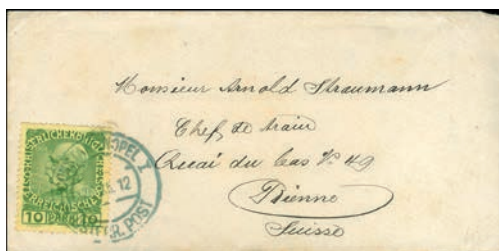 Monsieur Arnold Straumann
Chef de train
Quai du Bas No 49
Bienne
Suisse
OPEL I
12
POST
10 10